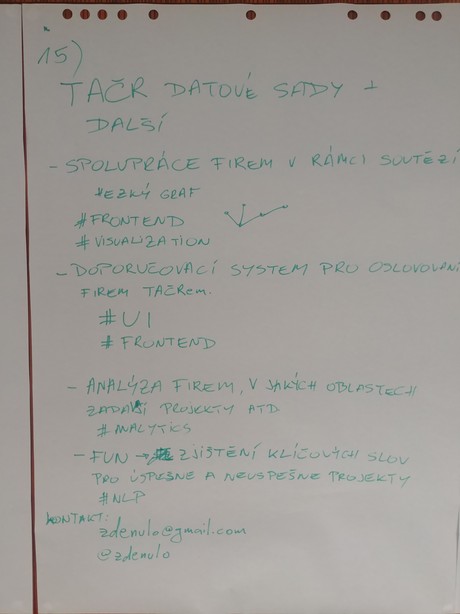 15)
TAČR DATOVÉ SADY +
DALŠÍ
- SPOLUPRÁCE FIREM V RÁMCI SOUTĚŽÍ
#EZKÝ GRAF
#FRONTEND
#VISUALIZATION
- DOPORUČOVACÍ SYSTEM PRO OSLOVOVANI
FIREM TAČREM.
#UI
# FRONTEND
- ANALÝZA FIREM, V JAKÝCH OBLASTECH
ZADALI PROJEKTY ATD
# ANALYTICS
- FUN → ZJIŠTĚNÍ KLÍČOVÝCH SLOV
PRO ÚSPĚŠNE A NEUSPEŠNE PROJEKTY
#NLP
KONTAKT:
zdenulo@gmail.com
@zdenulo